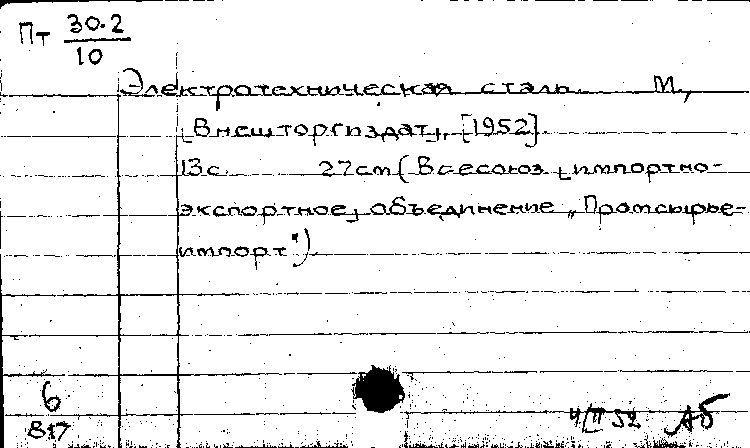 Пт 30.2
10
Электротехническая сталь. М.,
[Внешторгиздат], [1952].
13с. 27см (Всесоюз [импортно-
экспортное] объединение „Промсырье-
импорт").
6
817
4/II 52 АБ